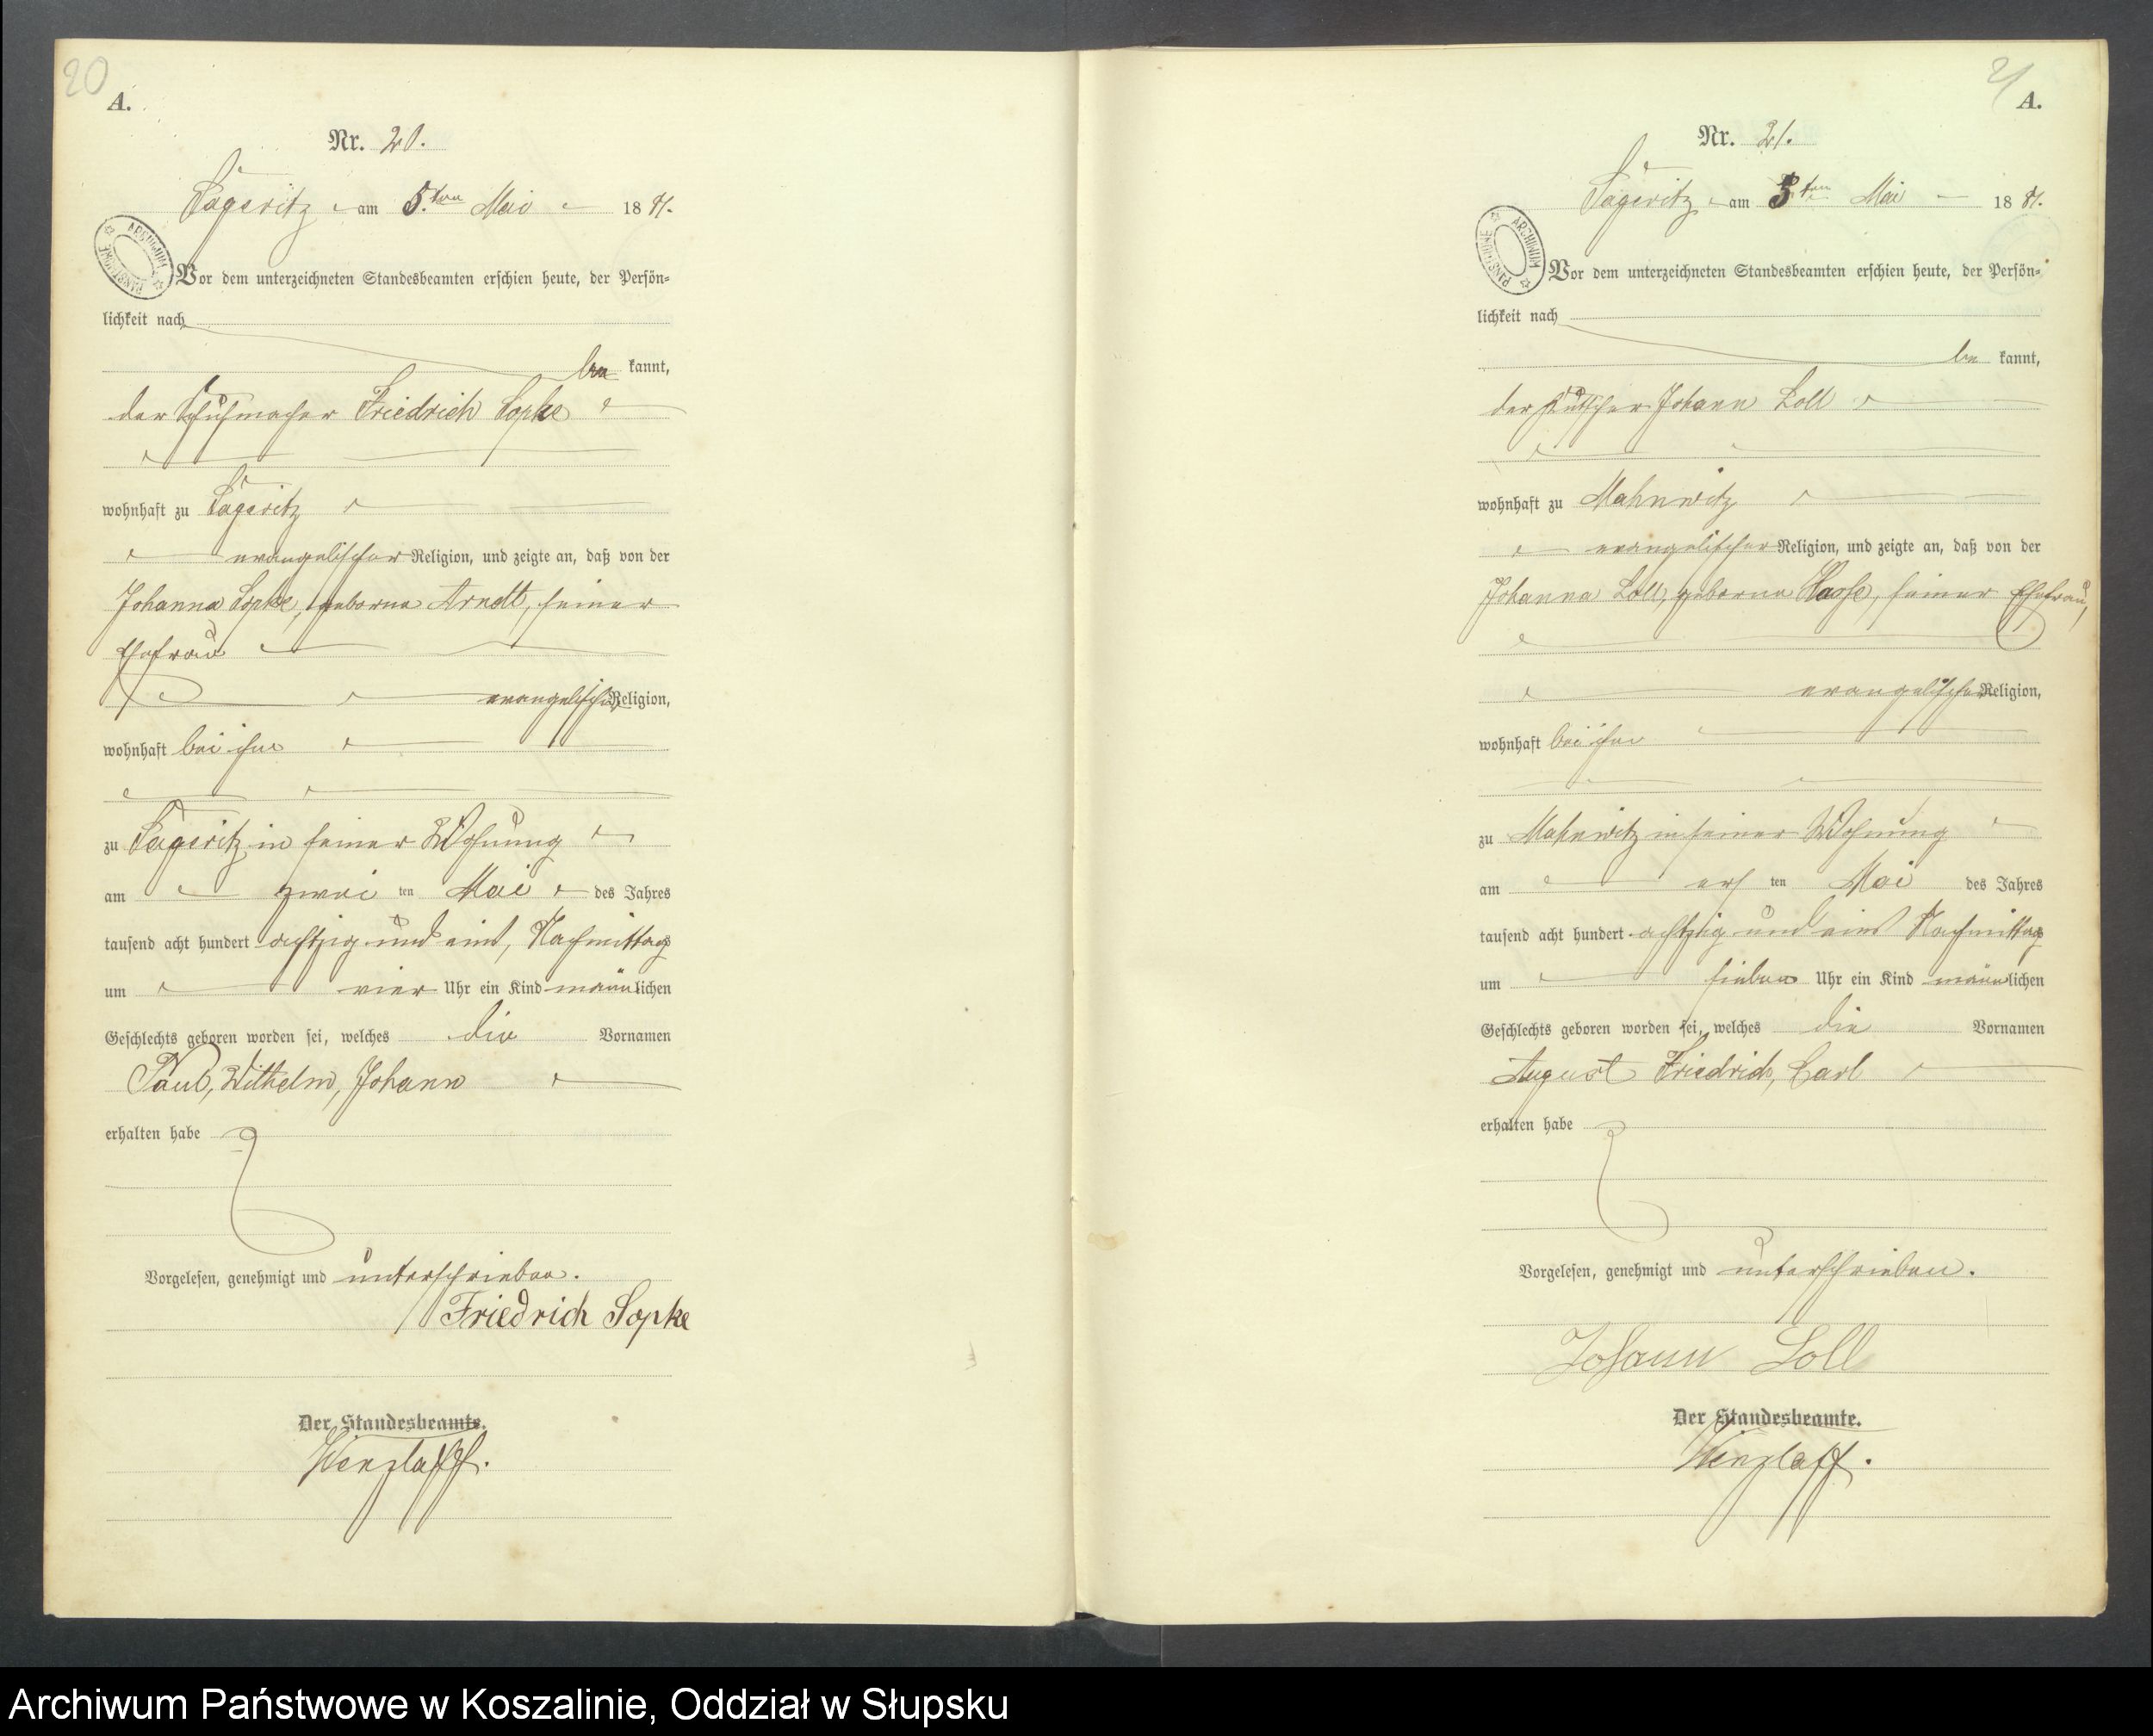 20
A.
Nr. 20.
Sageritz am 5.ten Mai 1881.
ARCHIWUM PAŃSTWOWE
Vor dem unterzeichneten Standesbeamten erschien heute, der Persön-
lichkeit nach
be kannt,
der Schuhmacher Friedrich Sopke
wohnhaft zu Sageritz
evangelischer Religion, und zeigte an, daß von der
Johanna Sopke, geborne Arndt, seiner
Ehefrau
evangelischer Religion,
wohnhaft bei ihm
zu Sageritz in seiner Wohnung
am zwei ten Mai des Jahres
tausend acht hundert achtzig und eins, Nachmittags
um vier Uhr ein Kind männlichen
Geschlechts geboren worden sei, welches die Vornamen
Paul, Wilhelm, Johann
erhalten habe
Vorgelesen, genehmigt und unterschrieben.
Friedrich Sopke
Der Standesbeamte.
Wenzlaff.
21
A.
Nr. 21.
Sageritz am 5ten Mai 1881.
ARCHIWUM PAŃSTWOWE
Vor dem unterzeichneten Standesbeamten erschien heute, der Persön-
lichkeit nach
be kannt,
der Kutscher Johann Loll
wohnhaft zu Mahnwitz
evangelischer Religion, und zeigte an, daß von der
Johanna Loll, geborne Haase, seiner Ehefrau,
evangelischer Religion,
wohnhaft bei ihm
zu Mahnwitz in seiner Wohnung
am ers ten Mai des Jahres
tausend acht hundert achtzig und eins Nachmittag
um sieben Uhr ein Kind männlichen
Geschlechts geboren worden sei, welches die Vornamen
August Friedrich, Carl
erhalten habe
Vorgelesen, genehmigt und unterschrieben.
Johann Loll
Der Standesbeamte.
Wenzlaff.
Archiwum Państwowe w Koszalinie, Oddział w Słupsku